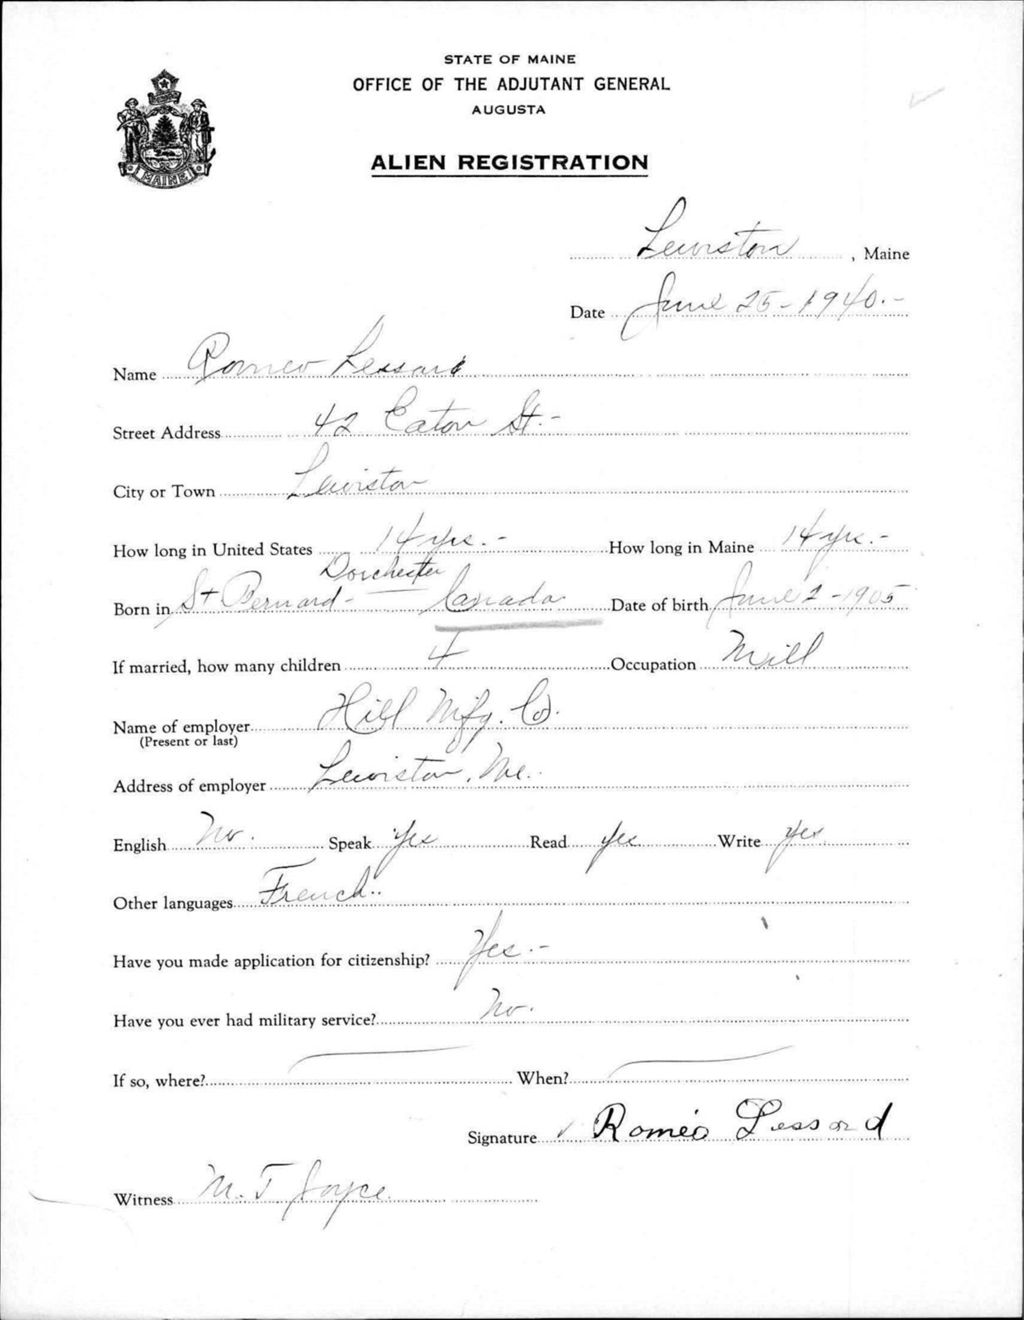 STATE OF MAINE
OFFICE OF THE ADJUTANT GENERAL
AUGUSTA
ALIEN REGISTRATION
MAINE
Lewiston, Maine
Date June 25-1940.-
Name Romeo Lessard
Street Address 42 Eaton St.-
City or Town Lewiston
How long in United States 14 yrs.- How long in Maine 14 yrs.-
Dorchester
Born in St Bernard- Canada Date of birth June 2-1905
If married, how many children 4 Occupation Mill
Name of employer Hill Mfg. Co.
(Present or last)
Address of employer Lewiston, Me.
English No. Speak Yes Read Yes Write Yes
Other languages French.
Have you made application for citizenship? Yes.-
Have you ever had military service? No.
If so, where? When?
Signature Roméo Lessard
Witness M. T. Joyce